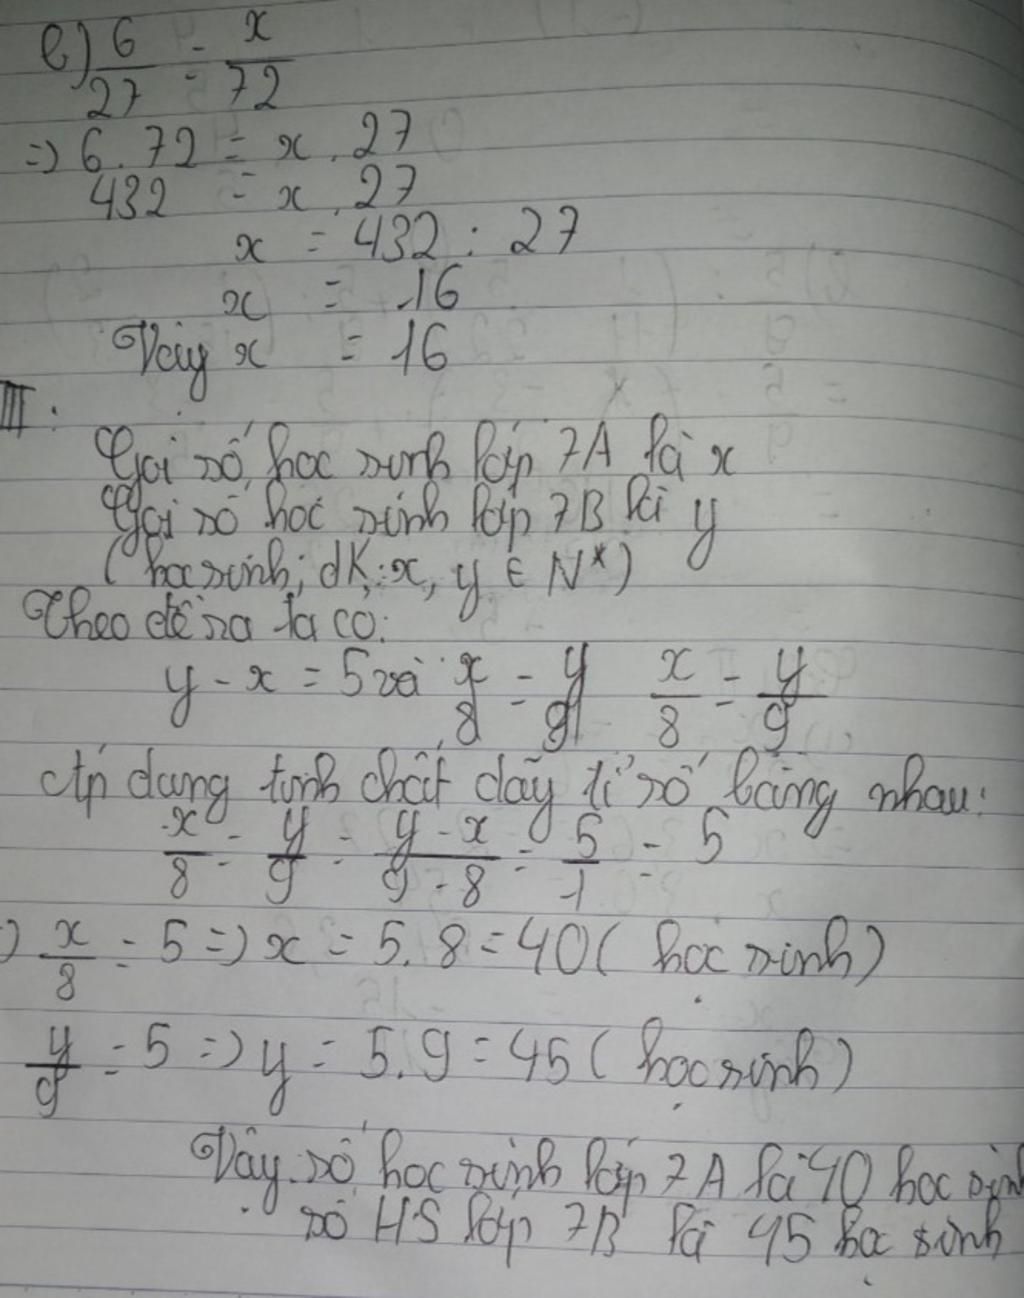 e) 6/27 = x/72
=> 6.72 = x.27
432 = x.27
x = 432 : 27
x = 16
Vậy x = 16
III:
Gọi số học sinh lớp 7A là x
Gọi số học sinh lớp 7B là y
(học sinh; đK: x, y ∈ N*)
Theo đề ra ta có:
y - x = 5 và x/8 = y/9 x/8 = y/9
Áp dụng tính chất dãy tỉ số bằng nhau:
x/8 = y/9 = y - x/9 - 8 = 5/1 = 5
=> x/8 = 5 => x = 5.8 = 40 (học sinh)
y/9 = 5 => y = 5.9 = 45 (học sinh)
Vậy số học sinh lớp 7A là 40 học sinh
số HS lớp 7B là 45 học sinh